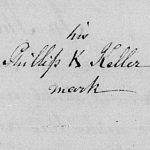 his
Phillip X Keller
mark